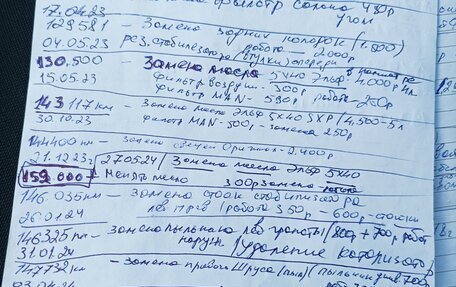 17.04.23 фильтр салона 450р
129581 - Замена задних колодок (1.800) угол
04.05.23 рез. стабилизатора (втулки) спереди работа - 2000р
130.500 - Замена масла 5x40 Эльф 4,000р 4л
15.05.23 фильтр воздушн - 300р
фильтр MAN - 590р работа - 250р
143117км - Замена масла Эльф 5x40 SXR /4,500-5л
30.10.23 фильтр MAN - 500р - замена 250р
144400км - Замена свечей Оригинал - 2.400р
21.12.23г /27.05.24/ Замена масла Эльф 5x40
159 000 Менять масло 300р замена
146.035км - Замена стоек стабилизатора
26.01.24 лев прав (работа 350р - 600р - стойки
146325км - Замена пыльника лев гранаты /800р + 700р работ
31.01.24 наруж /Удаление катализат
147732км - Замена правого Шруса (пыльник 700р
03.04.24